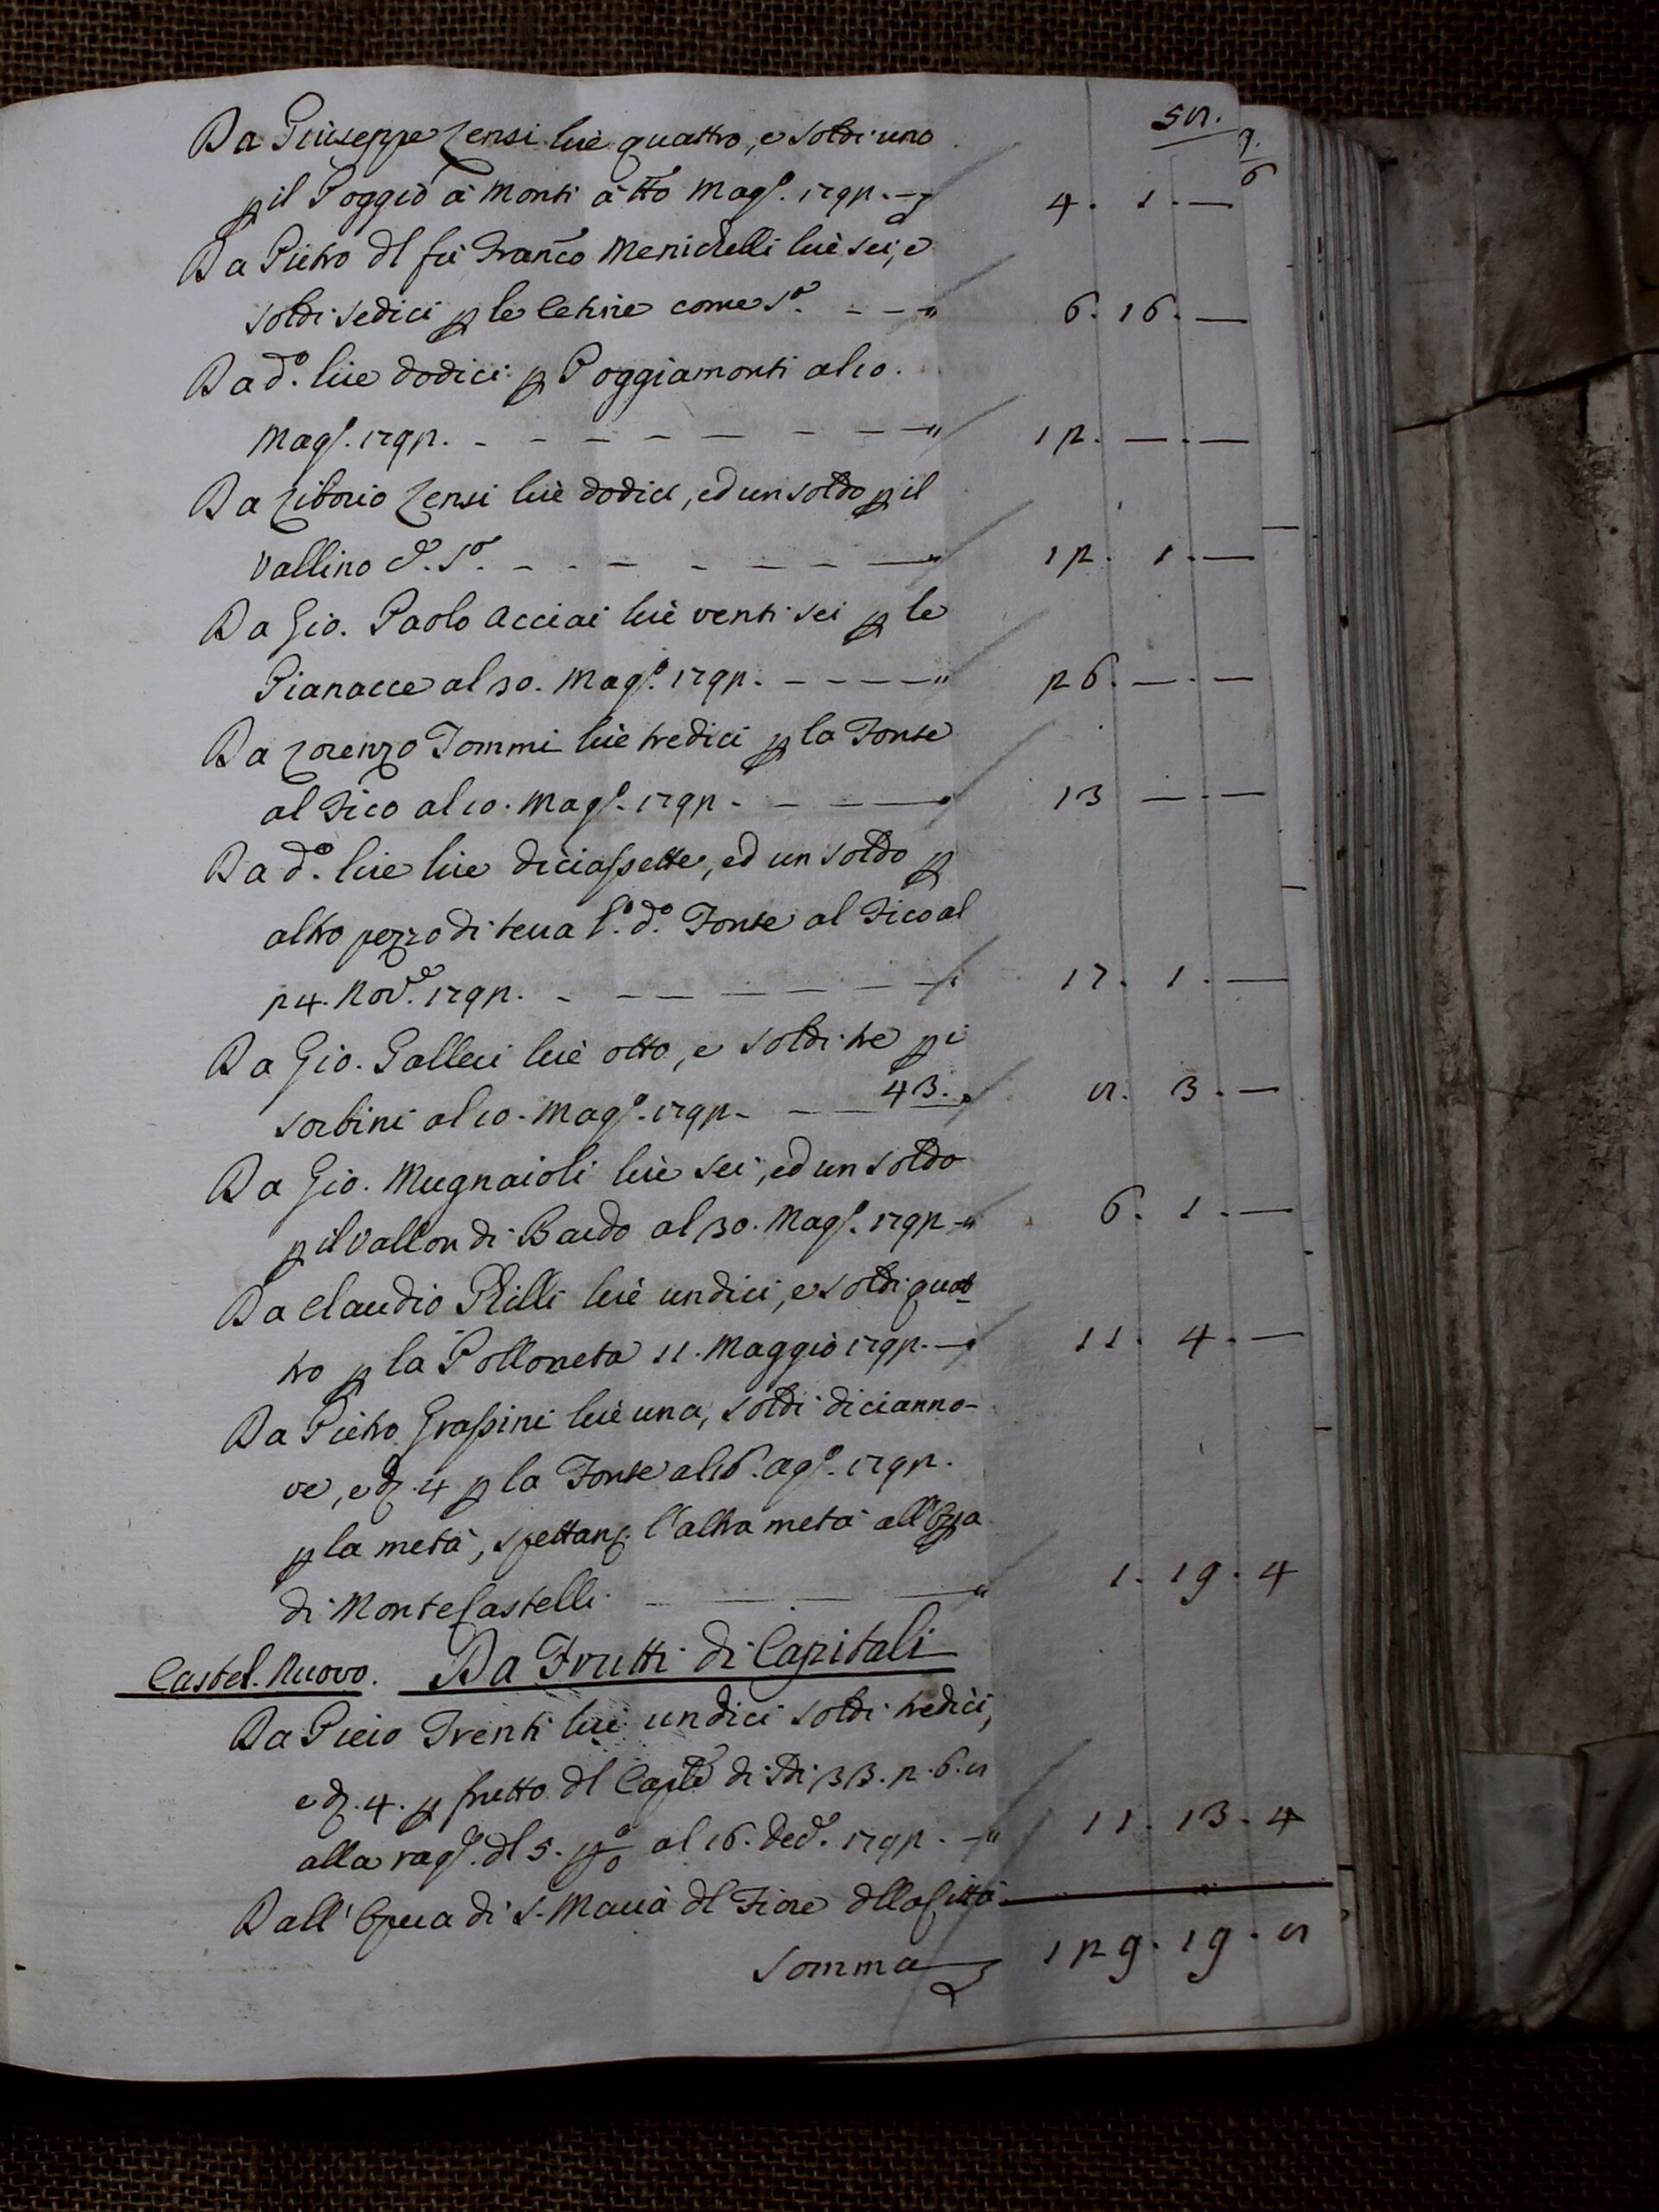 58.
Da Giuseppe Censi lire quattro, e soldi uno
p il Poggio a Monti a tto Magg.o 1792. — 4. 1. —
Da Pietro dl fù Franco Menichelli lire sei, e
soldi sedici p le Cetine come s.a — — 6. 16. —
Da d.o lire dodici p Poggiamonti al 10.
Magg.o 1792. — — — — — — 12. — . —
Da Liborio Censi lire dodici, ed un soldo p il
Vallino d.o S.a — — — — — — 12. 1. —
Da Gio. Paolo Acciai lire venti sei p le
Pianacce al 30. Magg.o 1792. — — — — 26. — . —
Da Lorenzo Tommi lire tredici p la Fonte
al Fico al 10. Magg.o 1792 — — — 13 — . —
Da d.o lire lire diciassette, ed un soldo p
altro pezzo di terra l.o d.o Fonte al Fico al
24. Nov.e 1792. — — — — — — 17. 1. —
Da Gio. Galleri lire otto, e soldi tre p i
Sorbini al 10. Magg.o 1792 — — 43. 8. 3. —
Da Gio. Mugnaioli lire sei, ed un soldo
p il Vallon di Bardo al 30. Magg.o 1792 — 6. 1. —
Da Claudio Rilli lire undici, e soldi quat
tro p la Polloneta 11. Maggio 1792. — 11. 4. —
Da Pietro Grassini lire una, soldi dicianno-
ve, e d. 4 p la Fonte al 16. ag.o 1792.
p la metà, spettando l'altra metà all'Opra
di MonteCastelli — — — — 1. 19. 4
Castel. Nuovo. Da Frutti di Capitali
Da Piero Trenti lire undici soldi tredici,
e d. 4. p frutto dl Caple di Di 33. 2. 6. 8
alla rag.e dl 5. p%o al 16. Dec.e 1792. — 11. 13. 4
Dall' Opera di S. Maria dl Fiore dlla Città
Somma 129. 19. 8